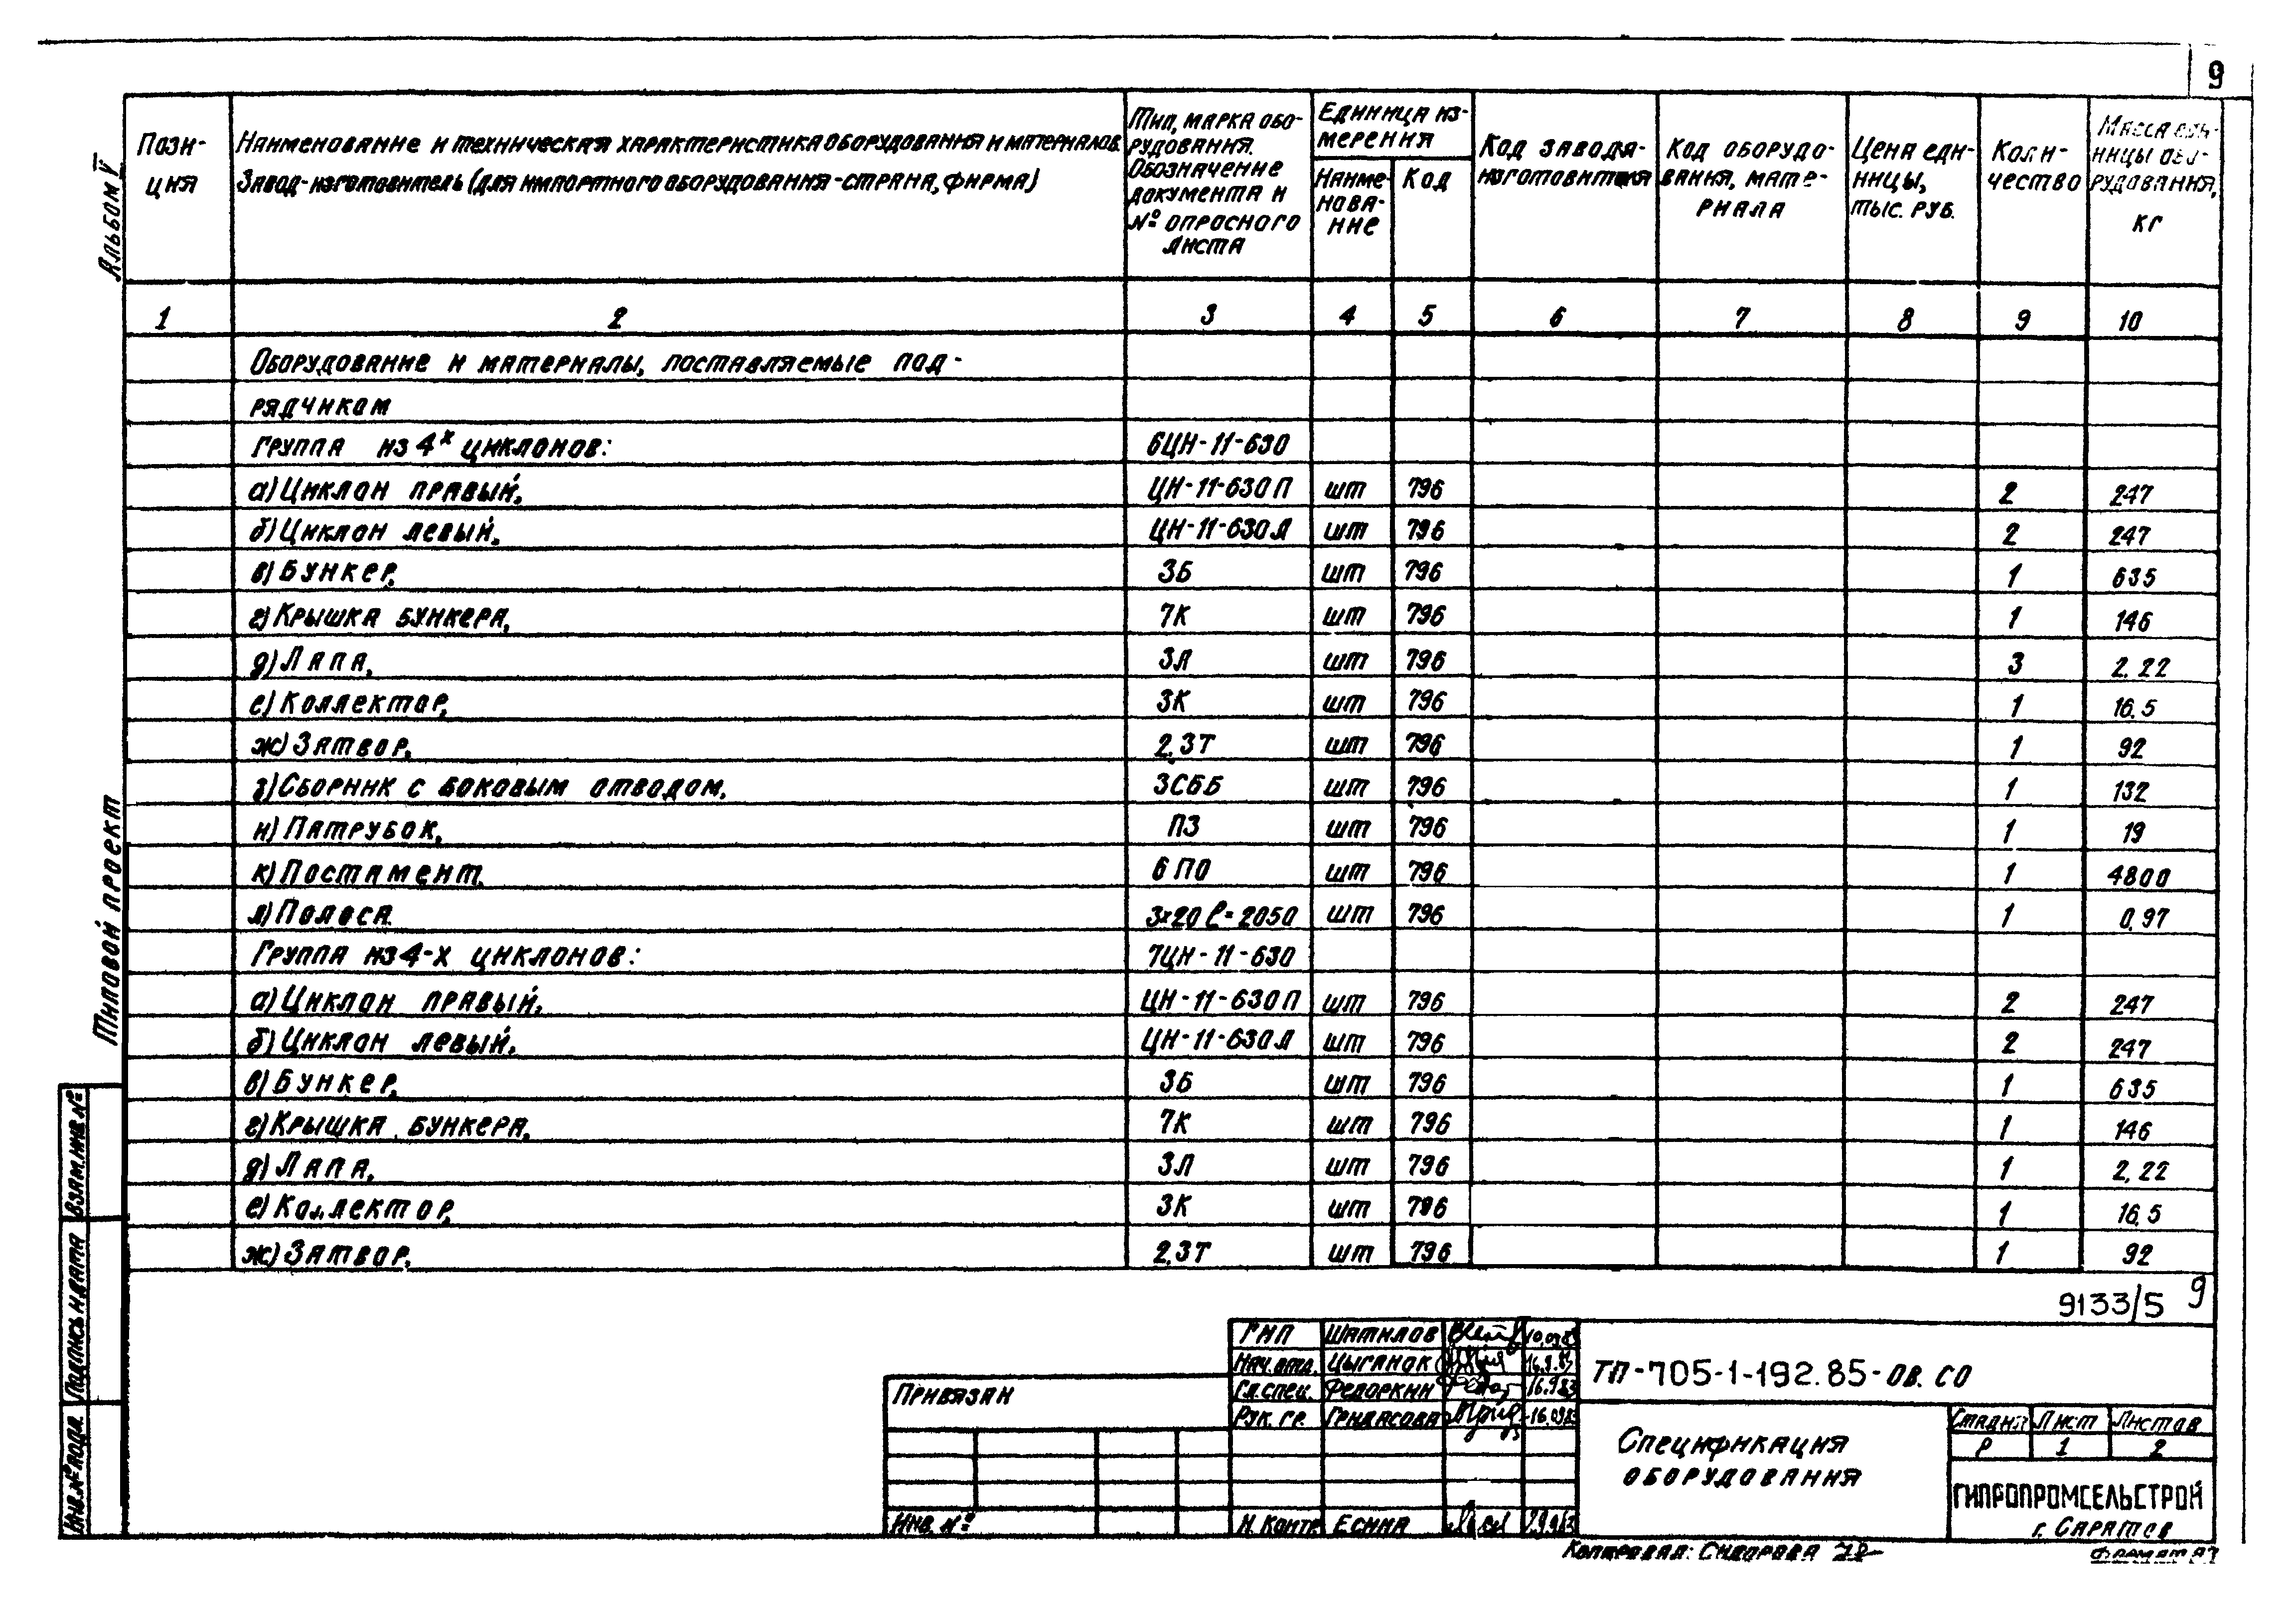 9
Альбом V
Типовой проект
Взам. инв. №
Подпись и дата
Инв. № подл.
Пози-
ция
Наименование и техническая характеристика оборудования и материалов.
Завод-изготовитель (для импортного оборудования-страна, фирма)
Тип, марка обо-
рудования.
Обозначение
документа и
№ опросного
листа
Единица из-
мерения
Наиме-
нова-
ние
Код
Код завода-
изготовителя
Код оборудо-
вания, мате-
риала
Цена еди-
ницы,
тыс. руб.
Коли-
чество
Масса еди-
ницы обо-
рудования,
кг
1 2 3 4 5 6 7 8 9 10
Оборудование и материалы, поставляемые под-
рядчиком
Группа из 4х циклонов: 6ЦН-11-630
а) Циклон правый, ЦН-11-630П шт 796 2 247
б) Циклон левый, ЦН-11-630Л шт 796 2 247
в) Бункер, 3Б шт 796 1 635
г) Крышка бункера, 7К шт 796 1 146
д) Лапа, 3Л шт 796 3 2,22
е) Коллектор, 3К шт 796 1 16,5
ж) Затвор, 2,3Т шт 796 1 92
з) Сборник с боковым отводом, 3СББ шт 796 1 132
и) Патрубок, П3 шт 796 1 19
к) Постамент, 6ПО шт 796 1 4800
л) Полоса 3х20 ℓ=2050 шт 796 1 0,97
Группа из 4-х циклонов: 7ЦН-11-630
а) Циклон правый, ЦН-11-630П шт 796 2 247
б) Циклон левый, ЦН-11-630Л шт 796 2 247
в) Бункер, 3Б шт 796 1 635
г) Крышка бункера, 7К шт 796 1 146
д) Лапа, 3Л шт 796 1 2,22
е) Коллектор, 3К шт 796 1 16,5
ж) Затвор, 2,3Т шт 796 1 92
9133/5 9
Привязан
Инв. №
ГИП Шатилов
Нач. отд. Цыганок
Гл. спец. Федоркин 16.9.83
Рук. гр. Гриндасова
Н. контр. Есина
ТП-705-1-192.85-ОВ.СО
Спецификация
оборудования
Стадия Лист Листов
Р 1 2
ГИПРОПРОМСЕЛЬСТРОЙ
г. Саратов
Копировал: Сидорова
Формат А3